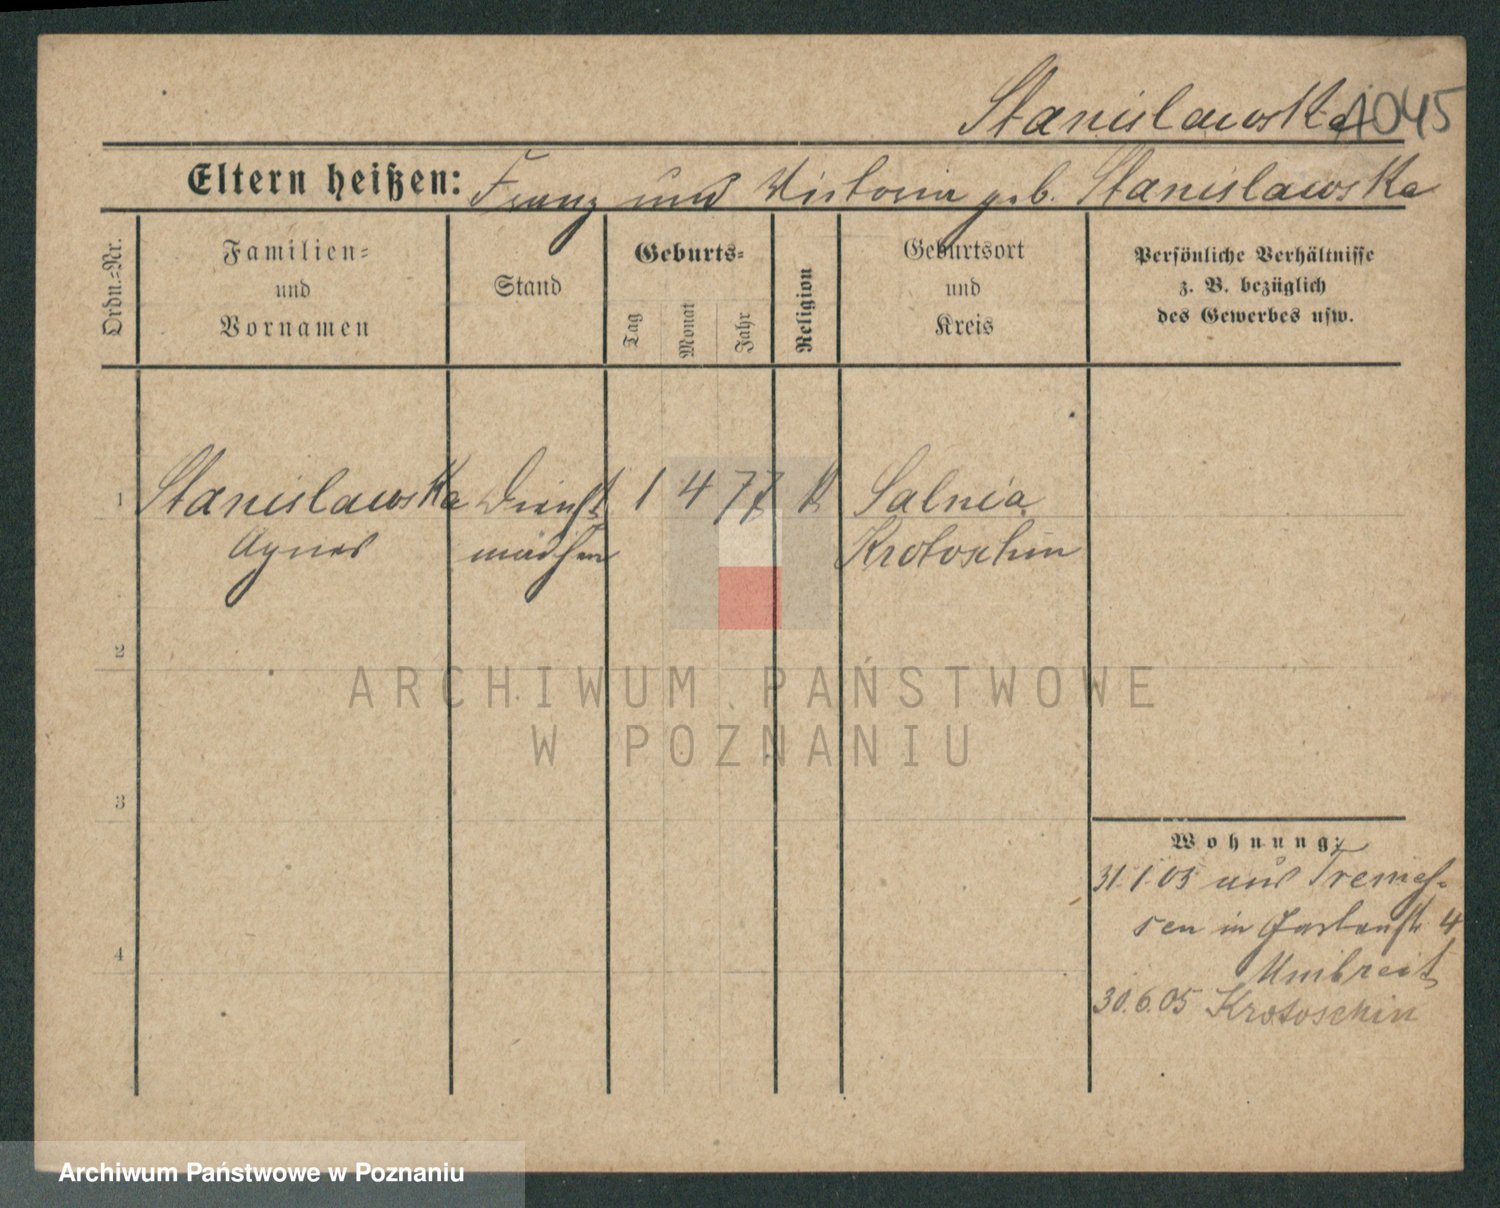 Stanislawska 1045
Eltern heißen: Franz und Victoria geb. Stanislawska
Ordn.=Nr.
Familien=
und
Vornamen
Stand
Geburts=
Tag
Monat
Jahr
Religion
Geburtsort
und
Kreis
Persönliche Verhältnisse
z. B. bezüglich
des Gewerbes usw.
1 Stanislawska Dienst 1 4 77 K Salnia
Agnes mädchen Krotoschin
2
3
4
Wohnung:
31.1.05 aus Tremes-
sen in Gartenstr 4
Umbreit
30.6.05 Krotoschin
ARCHIWUM PAŃSTWOWE
W POZNANIU
Archiwum Państwowe w Poznaniu